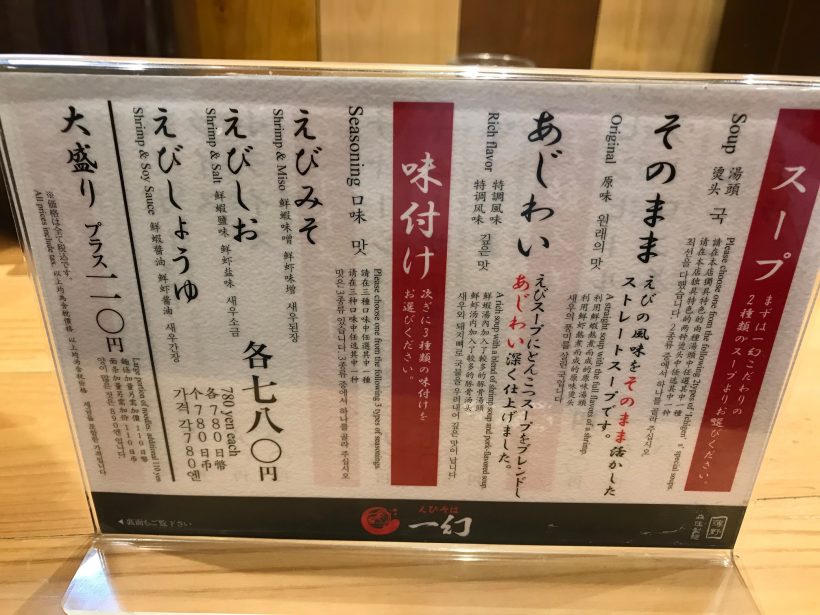 スープ
まずは一幻こだわりの
2種類のスープよりお選びください。
Soup 湯頭
烫头 국
Please choose one from the following 2 types of "Ichigen" s' special soups.
請在本店獨具特色的兩種湯頭中任選其中一種
请在本店独具特色的两种烫头中任选其中一种
그대로
そのまま
Original 原味 원래의 맛
えびの風味をそのまま活かした
ストレートスープです。
A straight soup with the full flavors of a shrimp.
利用鮮蝦熬煮而成的原味湯頭
利用鲜虾熬煮而成的原味烫头
새우의 풍미를 살린 국입니다
あじわい
Rich flavor 特調風味 깊은 맛
特调风味
えびスープにとんこつスープをブレンドし
あじわい深く仕上げました。
A rich soup with a blend of shrimp soup and pork-flavored soup.
鮮蝦湯內加入了較多的豚骨湯頭
鲜虾汤内加入了较多的豚骨汤头
새우와 돼지뼈로 국물을 우려내어 깊은 맛이 납니다
味付け
次ぎに3種類の味付けを
お選びください。
Seasoning 口味 맛
Please choose one from the following 3 types of seasonings.
請在三種口味中任選其中一種
请在三种口味中任选其中一种
맛은 3종류 있습니다. 3종류 중에서 하나를 골라 주십시오
えびみそ
Shrimp & Miso 鮮蝦味噌 鲜虾味增 새우된장
えびしお
Shrimp & Salt 鮮蝦鹽味 鲜虾盐味 새우소금
えびしょうゆ
Shrimp & Soy Sauce 鮮蝦醬油 鲜虾酱油 새우간장
各七八〇円
780 yen each
各780日幣
个780日币
가격 각780엔
大盛り プラス一一〇円
Large portion of noodles, additional 110 yen
※価格は全て税込です。
All prices include tax.
◀裏面もご覧下さい
えびそば
一幻